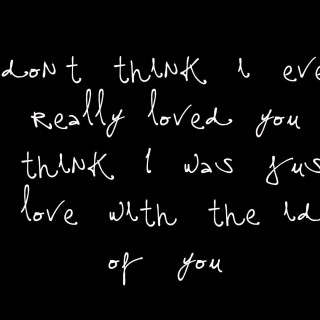 don't think i eve
Really loved you
think I was jus
love with the id
of you